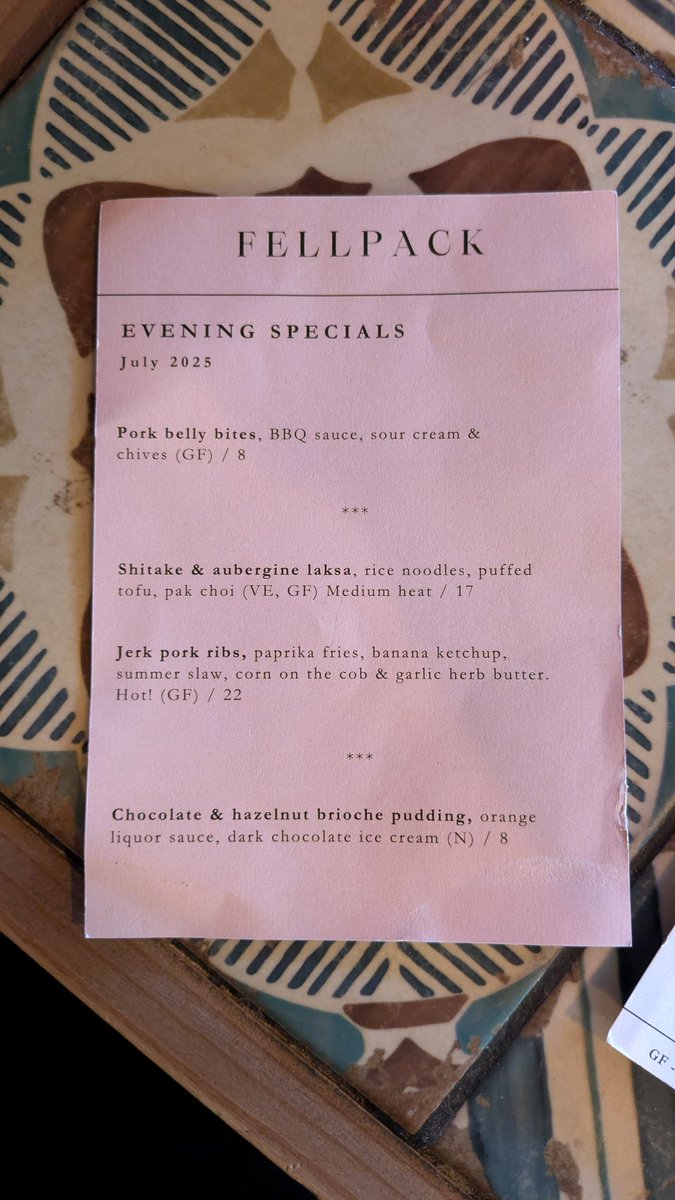 FELLPACK
EVENING SPECIALS
July 2025
Pork belly bites, BBQ sauce, sour cream &
chives (GF) / 8
***
Shitake & aubergine laksa, rice noodles, puffed
tofu, pak choi (VE, GF) Medium heat / 17
Jerk pork ribs, paprika fries, banana ketchup,
summer slaw, corn on the cob & garlic herb butter.
Hot! (GF) / 22
***
Chocolate & hazelnut brioche pudding, orange
liquor sauce, dark chocolate ice cream (N) / 8
GF -